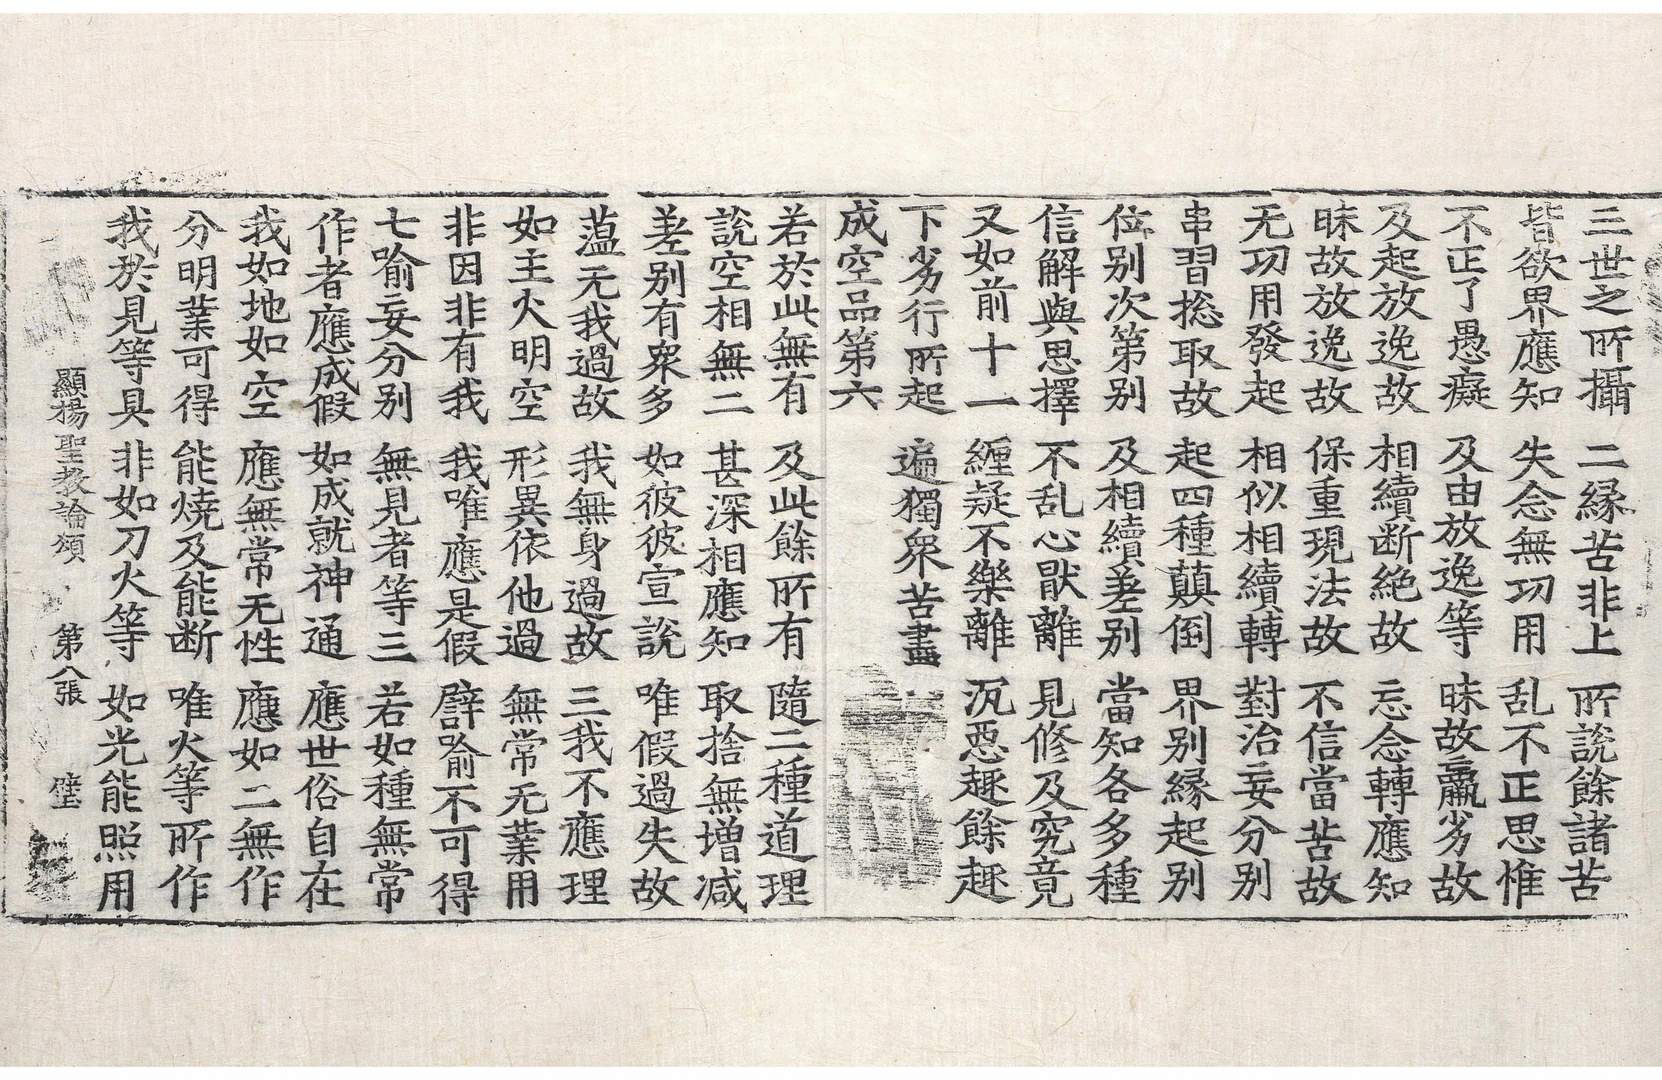 三世之所攝　二縁苦非上　所說餘諸苦
皆欲界應知　失念無功用　乱不正思惟
不正了愚癡　及由放逸等　昧故羸劣故
及起放逸故　相續断絶故　忘念轉應知
昧故放逸故　保重現法故　不信當苦故
无功用發起　相似相續轉　對治妄分别
串習捴取故　起四種顛倒　界别縁起别
位别次第别　及相續差别　當知各多種
信解與思擇　不乱心猒離　見修及究竟
又如前十一　纏疑不樂離　沉惡趣餘趣
下劣行所起　遍獨衆苦盡
成空品第六
若於此無有　及此餘所有　隨二種道理
說空相無二　甚深相應知　取捨無增减
差别有衆多　如彼彼宣說　唯假過失故
薀无我過故　我無身過故　三我不應理
如主火明空　形異依他過　無常无業用
非因非有我　我唯應是假　譬喻不可得
七喻妄分别　無見者等三　若如種無常
作者應成假　如成就神通　應世俗自在
我如地如空　應無常无性　應如二無作
分明業可得　能燒及能断　唯火等所作
我於見等具　非如刀火等　如光能照用
顯揚聖教論頌　第八張　璧